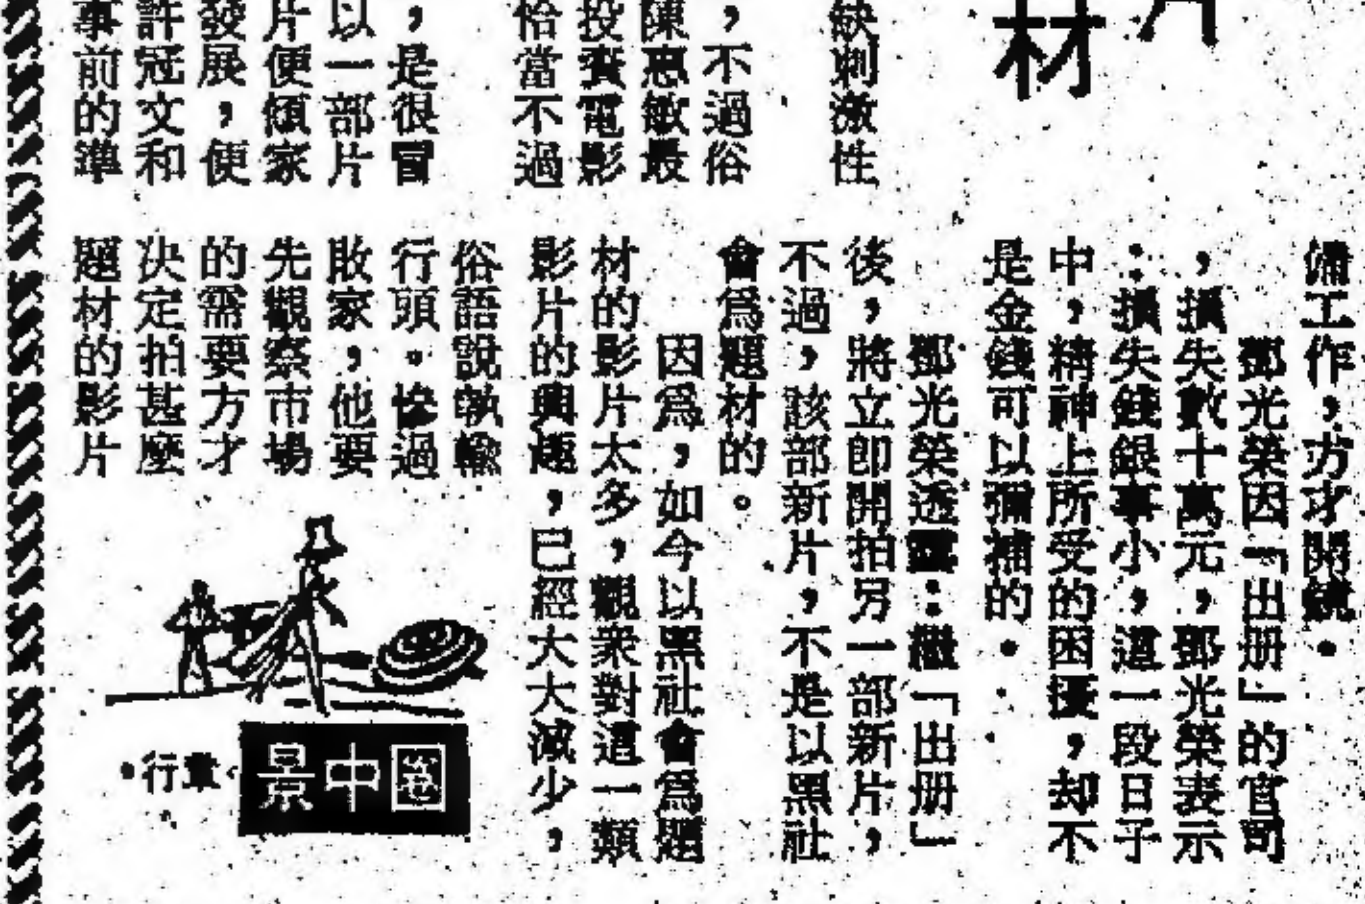 材
缺刺激性
，不過俗
陳惠敏最
投資電影
恰當不過
，是很冒
以一部片
片便傾家
發展，便
許冠文和
事前的準
備工作，方才開鏡。
鄧光榮因「出册」的官司
，損失數十萬元，鄧光榮表示
：損失錢銀事小，這一段日子
中，精神上所受的困擾，却不
是金錢可以彌補的。
鄧光榮透露：繼「出册」
後，將立即開拍另一部新片，
不過，該部新片，不是以黑社
會爲題材的。
因爲，如今以黑社會爲題
材的影片太多，觀衆對這一類
影片的興趣，已經大大減少，
俗語說執輸
行頭。慘過
敗家，他要
先觀察市場
的需要方才
決定拍甚麼
題材的影片
圈中景
·行章·